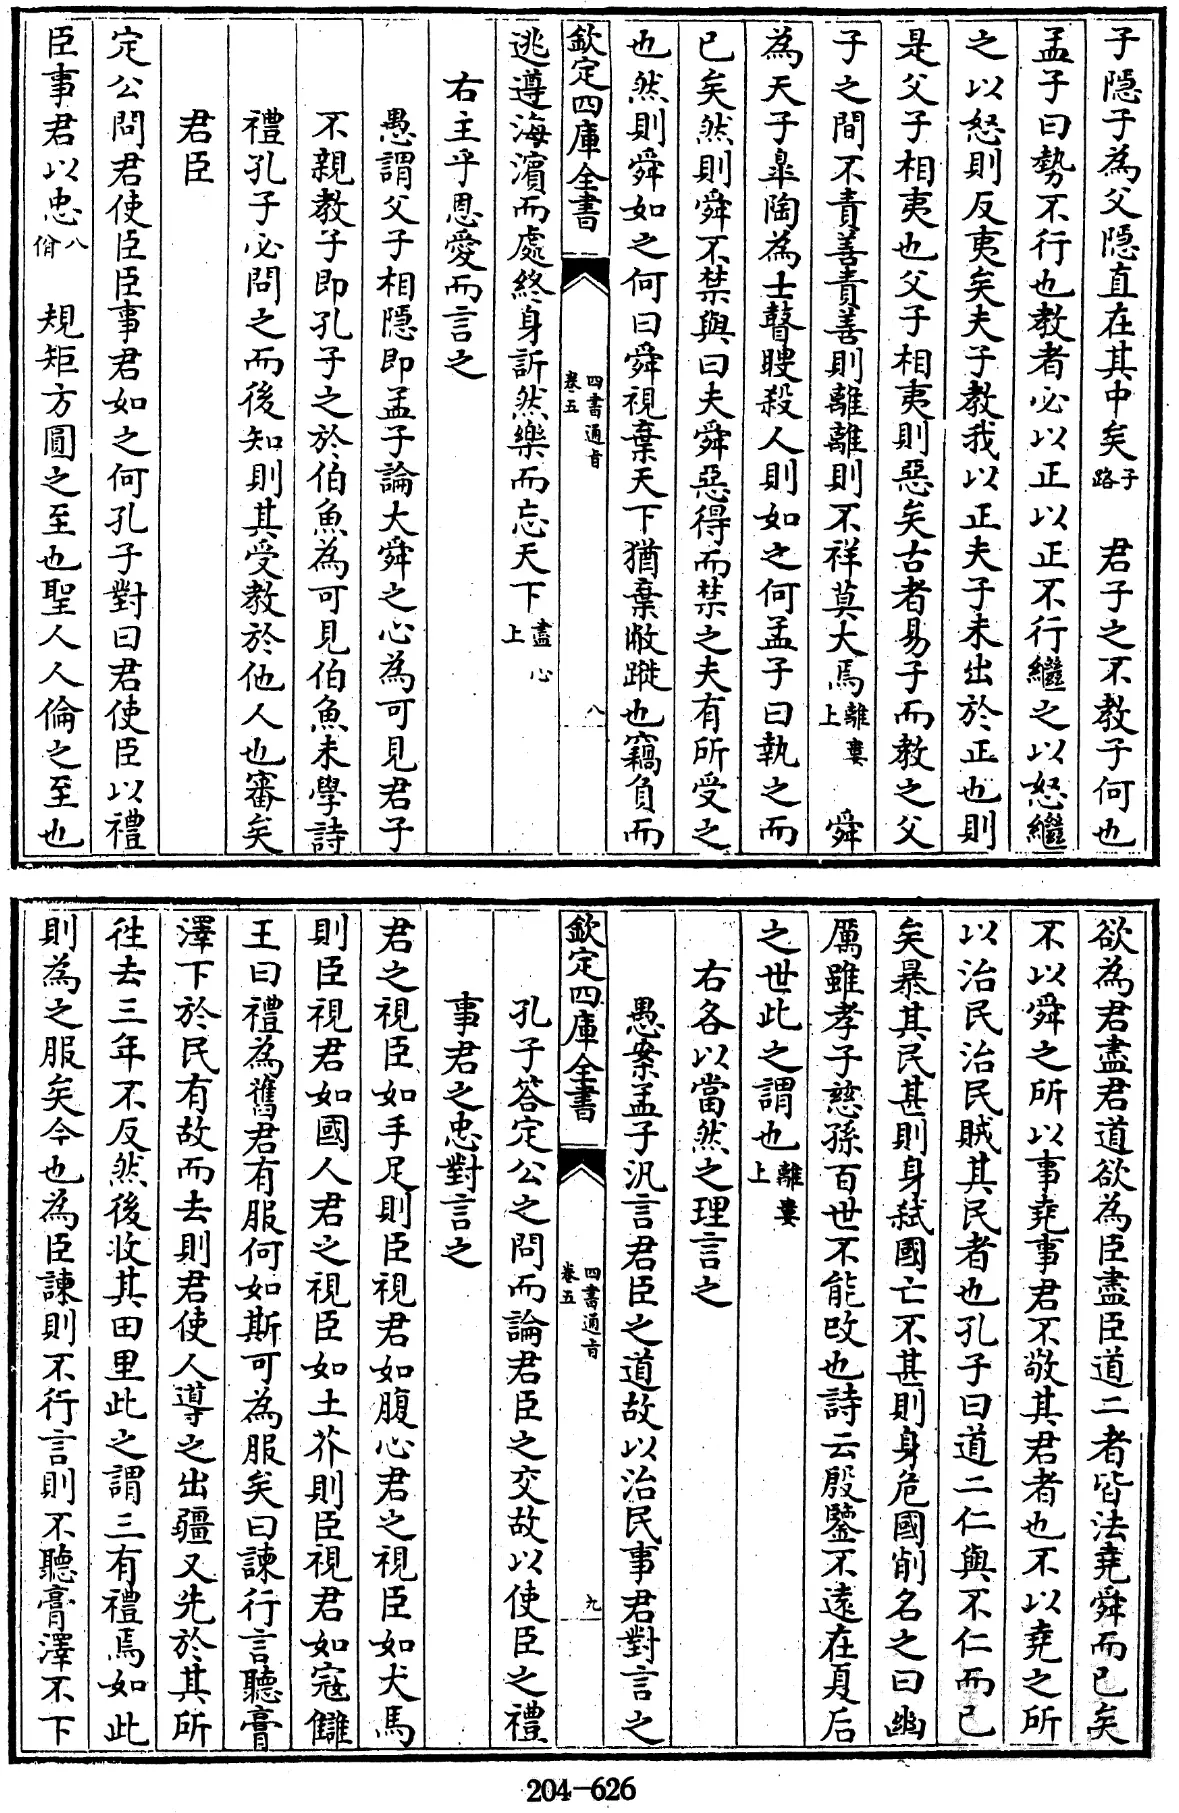 子隱子為父隱直在其中矣子路　君子之不教子何也
孟子曰勢不行也教者必以正以正不行繼之以怒繼
之以怒則反夷矣夫子教我以正夫子未出於正也則
是父子相夷也父子相夷則惡矣古者易子而教之父
子之間不責善責善則離離則不祥莫大焉離婁上　舜
為天子臯陶為士瞽瞍殺人則如之何孟子曰執之而
已矣然則舜不禁與曰夫舜惡得而禁之夫有所受之
也然則舜如之何曰舜視棄天下猶棄敝蹝也竊負而
欽定四庫全書　四書通旨卷五　八
逃遵海濱而處終身訢然樂而忘天下盡心上
右主乎恩愛而言之
愚謂父子相隱即孟子論大舜之心為可見君子
不親教子即孔子之於伯魚為可見伯魚未學詩
禮孔子必問之而後知則其受教於他人也審矣
君臣
定公問君使臣臣事君如之何孔子對曰君使臣以禮
臣事君以忠八佾　規矩方圓之至也聖人人倫之至也
欲為君盡君道欲為臣盡臣道二者皆法堯舜而已矣
不以舜之所以事堯事君不敬其君者也不以堯之所
以治民治民賊其民者也孔子曰道二仁與不仁而已
矣暴其民甚則身弑國亡不甚則身危國削名之曰幽
厲雖孝子慈孫百世不能改也詩云殷鑒不遠在夏后
之世此之謂也離婁上
右各以當然之理言之
愚案孟子汎言君臣之道故以治民事君對言之
欽定四庫全書　四書通旨卷五　九
孔子答定公之問而論君臣之交故以使臣之禮
事君之忠對言之
君之視臣如手足則臣視君如腹心君之視臣如犬馬
則臣視君如國人君之視臣如土芥則臣視君如寇讎
王曰禮為舊君有服何如斯可為服矣曰諫行言聽膏
澤下於民有故而去則君使人導之出疆又先於其所
往去三年不反然後收其田里此之謂三有禮焉如此
則為之服矣今也為臣諫則不行言則不聽膏澤不下
204-626